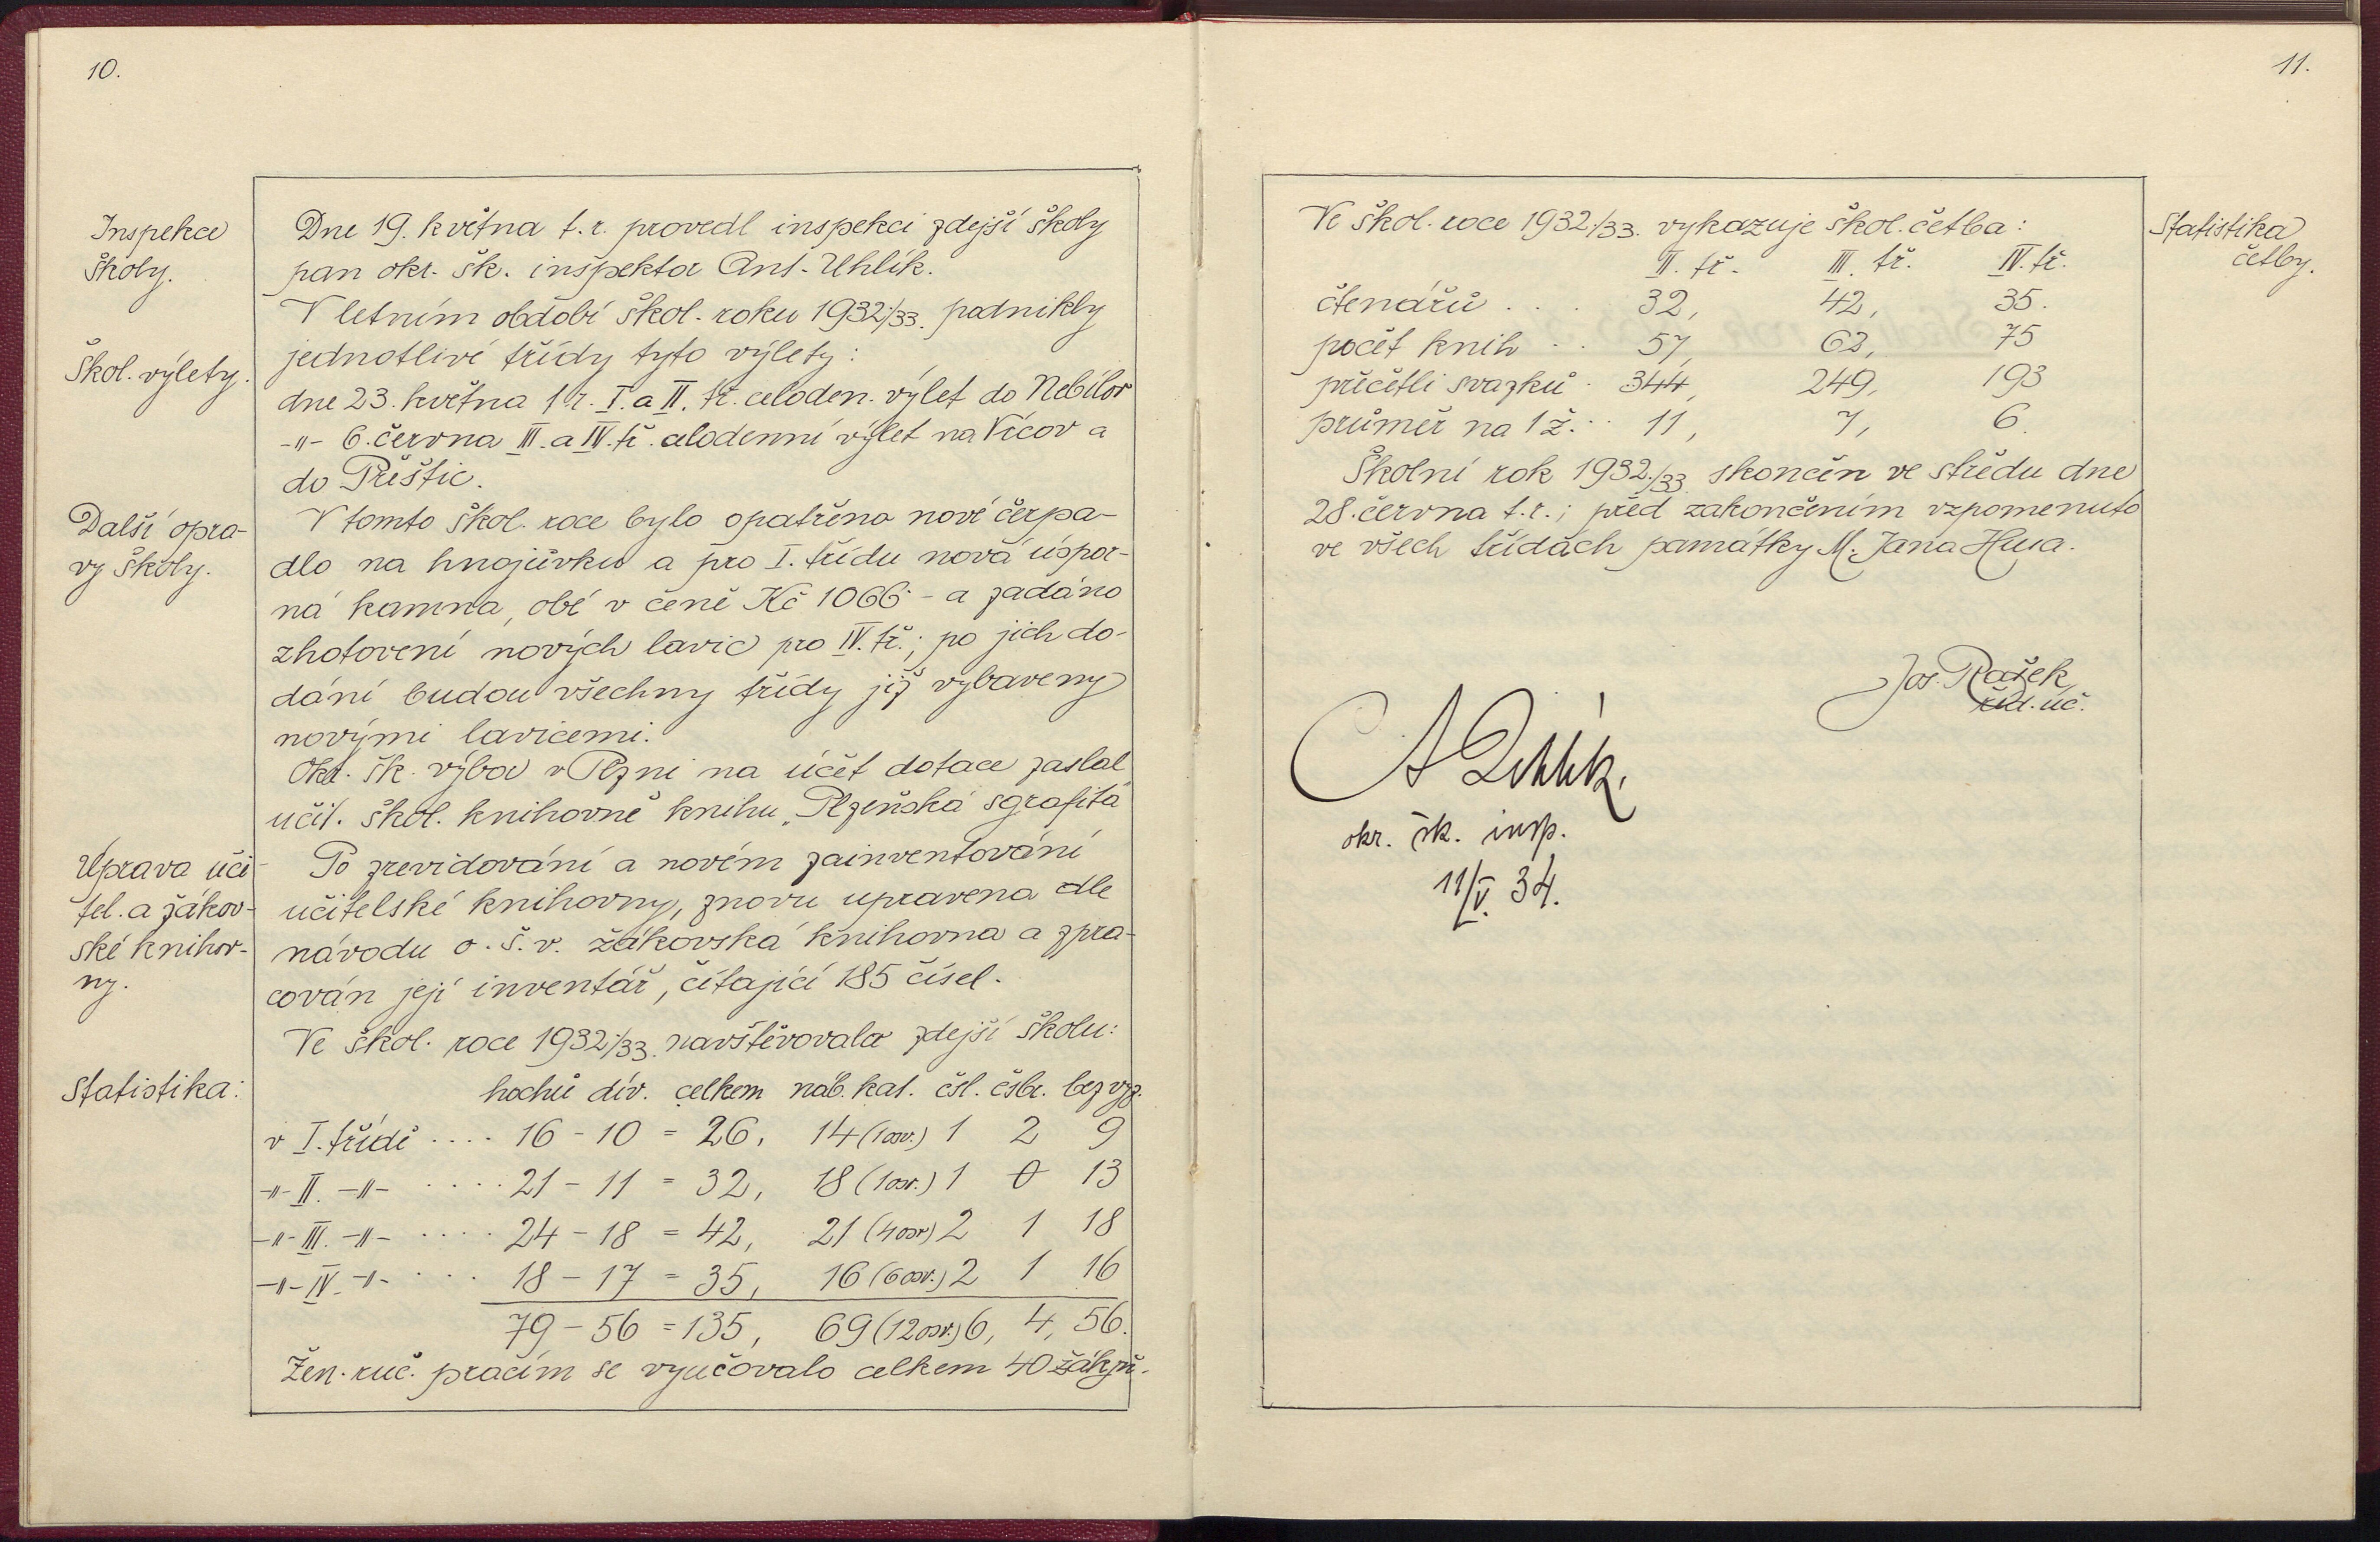 10.
Inspekce
školy.
Dne 19. května t. r. provedl inspekci zdejší školy
pan okr. šk. inspektor Ant. Uhlík.
V letním období škol. roku 1932/33. podnikly
Škol. výlety.
jednotlivé třídy tyto výlety:
dne 23. května t r. I. a II. tř. celoden. výlet do Nebílov
-"- 6. června III. a IV. tř. celodenní výlet na Vícov a
do Přeštic.
Další opra-
vy školy.
V tomto škol. roce bylo opatřeno nové čerpa-
dlo na hnojůvku a pro I. třídu nová úspor-
ná kamna, obé v ceně Kč 1066·- a zadáno
zhotovení nových lavic pro IV. tř.; po jich do-
dání budou všechny třídy již vybaveny
novými lavicemi.
Okr. šk. výbor v Plzni na účet dotace zaslal
učit. škol. knihovně knihu „Plzeňská sgrafita"
Úprava uči-
tel. a žákov-
ské knihov-
ny.
Po zrevidování a novém zainventování
učitelské knihovny, znovu upravena dle
návodu o. š. v. žákovská knihovna a zpra-
cován její inventář, čítající 185 čísel.
Ve škol. roce 1932/33. navštěvovalo zdejší školu:
Statistika:
hochů dív. celkem náb. kat. čsl. čsbr. bez vyz.
v I. třídě .... 16 - 10 = 26, 14 (1 osv.) 1 2 9
-"- II. -"- .... 21 - 11 = 32, 18 (1 osv.) 1 0 13
-"- III. -"- .... 24 - 18 = 42, 21 (4 osv) 2 1 18
-"- IV. -"- .... 18 - 17 = 35, 16 (6 osv.) 2 1 16
79 - 56 = 135, 69 (12 osv.) 6, 4, 56.
Žen. ruč. pracím se vyučovalo celkem 40 žákyň.
11.
Statistika
četby.
Ve škol. roce 1932/33. vykazuje škol. četba:
II. tř. III. tř. IV. tř.
čtenářů . . . 32, 42, 35.
počet knih . . 57, 62, 75
přečetli svazků . 344, 249, 193
průměr na 1 ž. . . 11, 7, 6.
Školní rok 1932./33. skončen ve středu dne
28. června t. r.; před zakončením vzpomenuto
ve všech třídách památky M. Jana Husa.
Jos. Rašek
říd. uč.
A Uhlík.
okr. šk. insp.
11/V. 34.